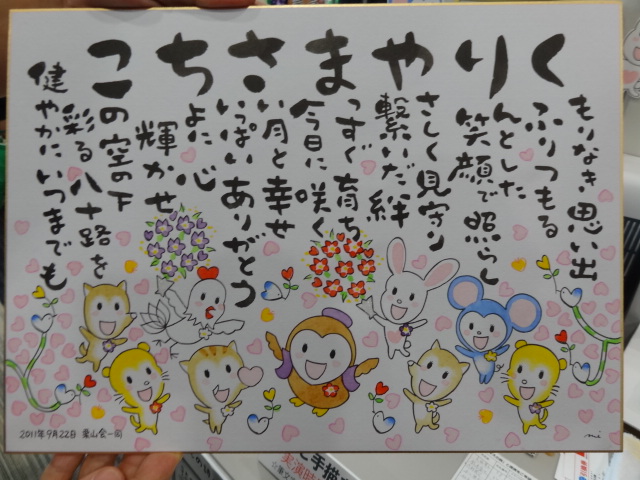 くりやまさちこ
もりなき思い出
ふりつもる
んとした
笑顔で照らし
さしく見守り
繋いだ絆
っすぐ育ち
今日に咲く
い月と幸せ
いっぱいありがとう
よに心
輝かせ
の空の下
彩る八十路を
健やかにいつまでも
2011年9月22日 栗山会一同
mi
手描